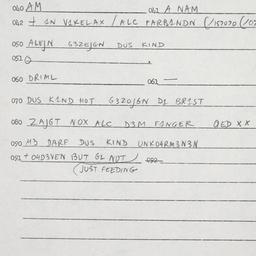 040 AM 041 A NAM
042 + IN VIKELAX / ALC FARBANDN (/157070 (/0
050 ALEJN G3ZEJGN DUS KIND
051
060 DRIML 061 —
070 DUS KIND HOT G3ZOJGN DI BRIST
080 ZAJGT NOX ALC D3M FINGER QED XX
090 M3 DARF DUS KIND UNKO4RM3N3N
091 + O4D3VEN BUT GL NOT) 092
(JUST FEEDING